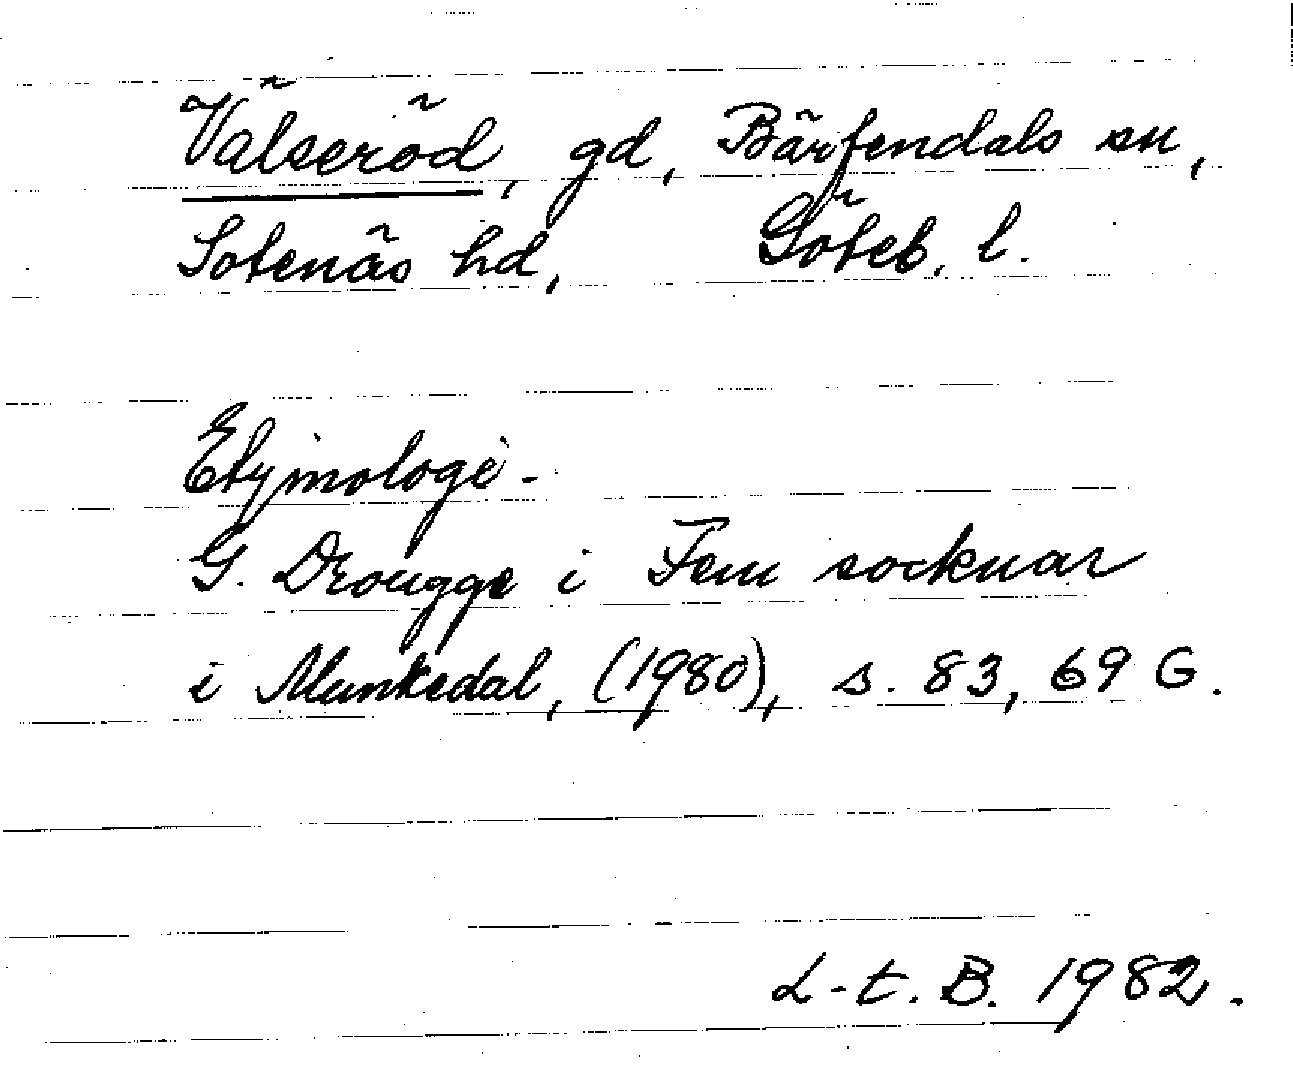 Välseröd, gd, Bärfendals sn,
Sotenäs hd, Göteb. l.
Etymologi.
G. Drougge i Fem socknar
i Munkedal, (1980), s. 83, 69 G.
L-t. B. 1982.